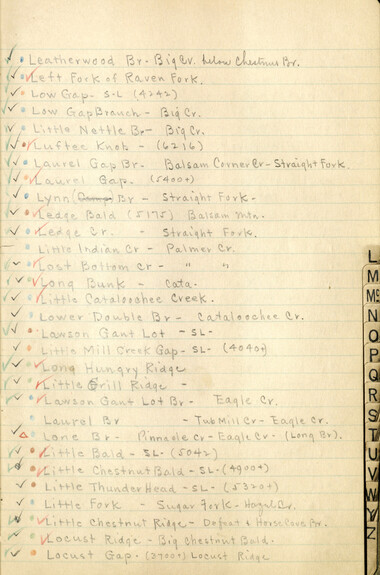 Leatherwood Br - Big Cr. below Chestnut Br.
Left Fork of Raven Fork.
Low Gap - S-L (4242)
Low Gap Branch - Big Cr.
Little Nettle Br - Big Cr.
Luftee Knob - (6216)
Laurel Gap Br. Balsam Corner Cr - Straight Fork.
Laurel Gap. (5400+)
Lynn Br - Straight Fork -
Ledge Bald (5175) Balsam Mtn.
Ledge Cr. - Straight Fork.
Little Indian Cr - Palmer Cr.
Lost Bottom Cr - " "
Long Bunk - Cata.
Little Cataloochee Creek.
Lower Double Br - Cataloochee Cr.
Lawson Gant Lot - SL -
Little Mill Creek Gap - SL - (4040+)
Long Hungry Ridge
Little Grill Ridge -
Lawson Gant Lot Br - Eagle Cr.
Laurel Br - Tub Mill Cr - Eagle Cr.
Lone Br - Pinnacle Cr - Eagle Cr - (Long Br).
Little Bald - SL - (5042)
Little Chestnut Bald - SL - (4900+)
Little Thunder Head - SL - (5320+)
Little Fork - Sugar Fork - Hazel Br.
Little Chestnut Ridge - Defeat & Horse Cove Br.
Locust Ridge - Big Chestnut Bald.
Locust Gap. (2700+) Locust Ridge
L
M
Mc
N
O
P
Q
R
S
T
U
V
W
Y
Z